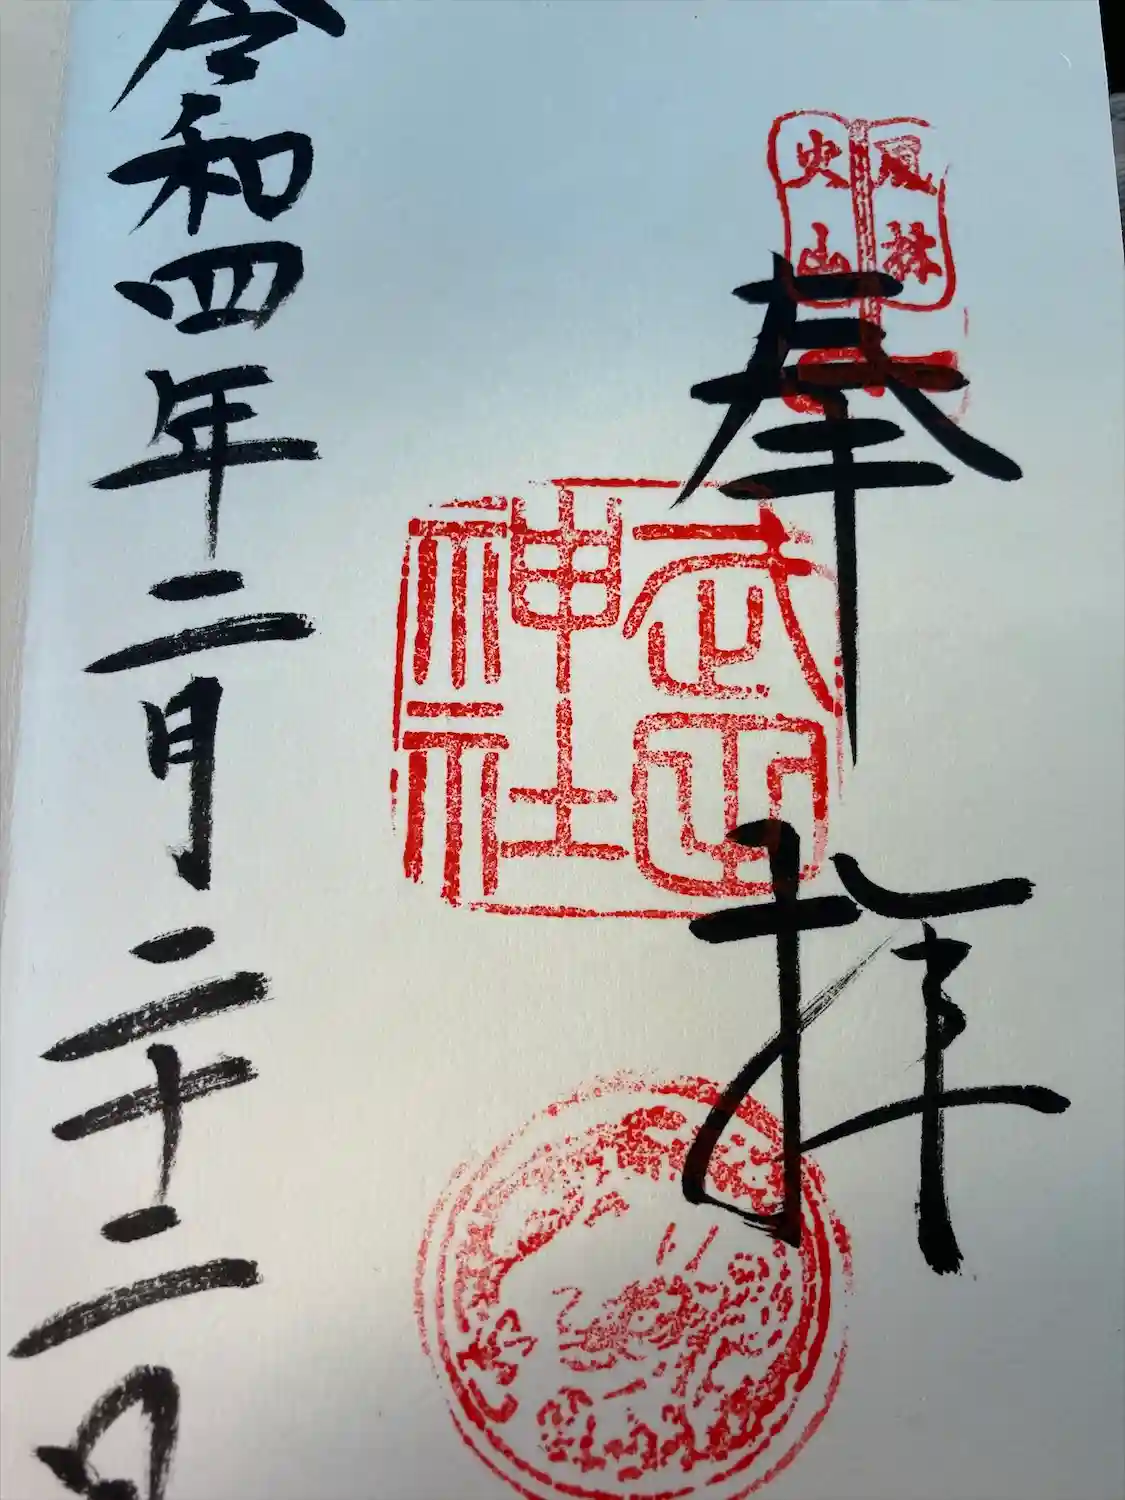 風林
火山
奉拝
武田
神社
令和四年二月二十二日